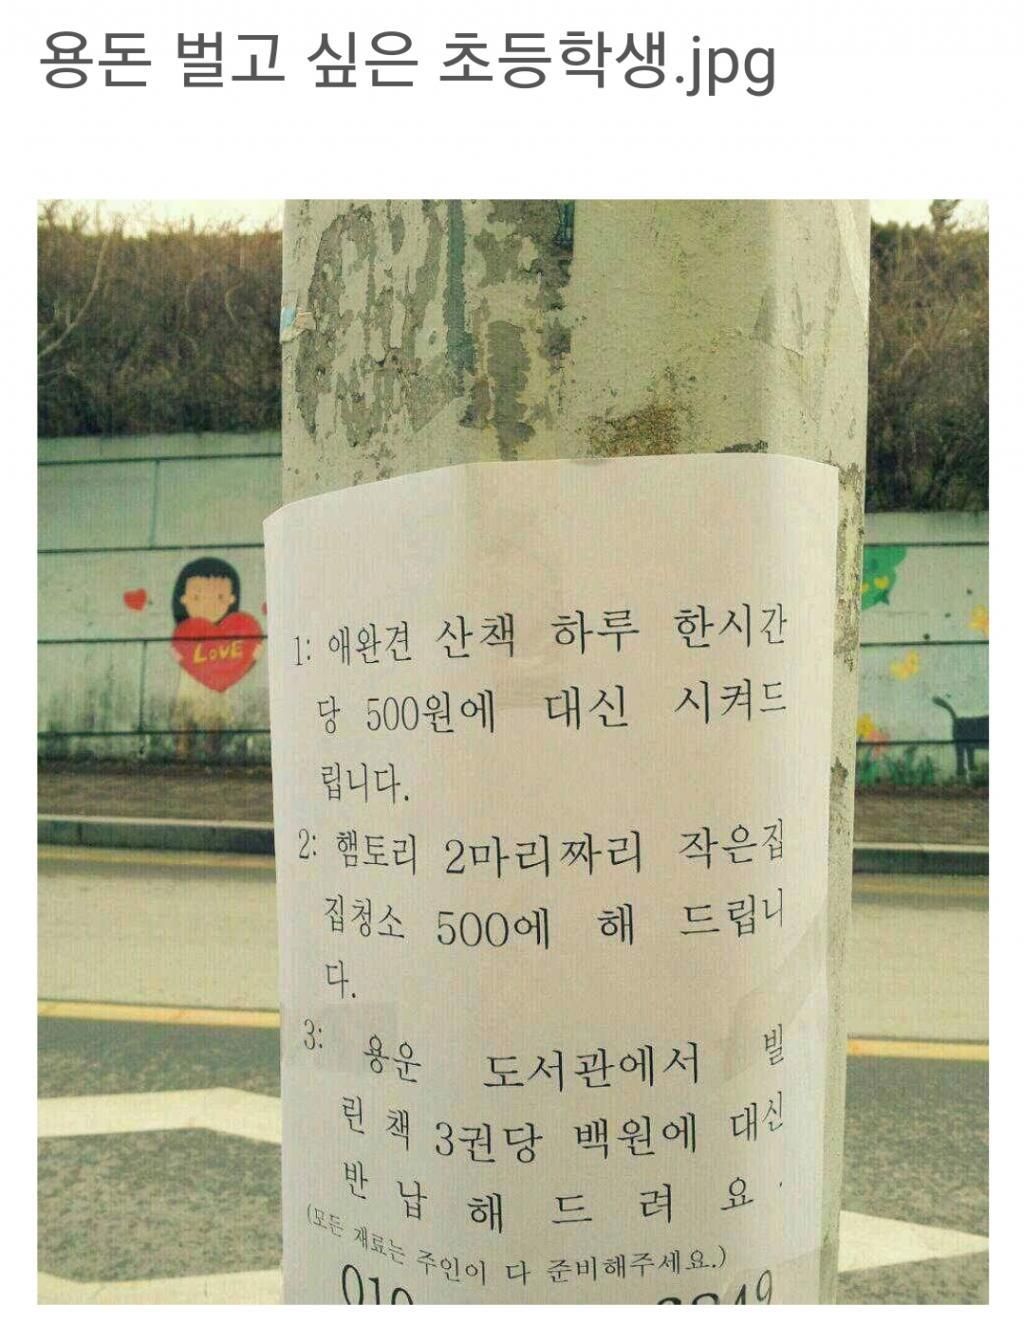 용돈 벌고 싶은 초등학생.jpg
LOVE
1: 애완견 산책 하루 한시간
당 500원에 대신 시켜드
립니다.
2: 햄토리 2마리짜리 작은집
집청소 500에 해 드립니
다.
3: 용운 도서관에서 빌
린 책 3권당 백원에 대신
반 납 해 드 려 요 .
(모든 재료는 주인이 다 준비해주세요.)
010